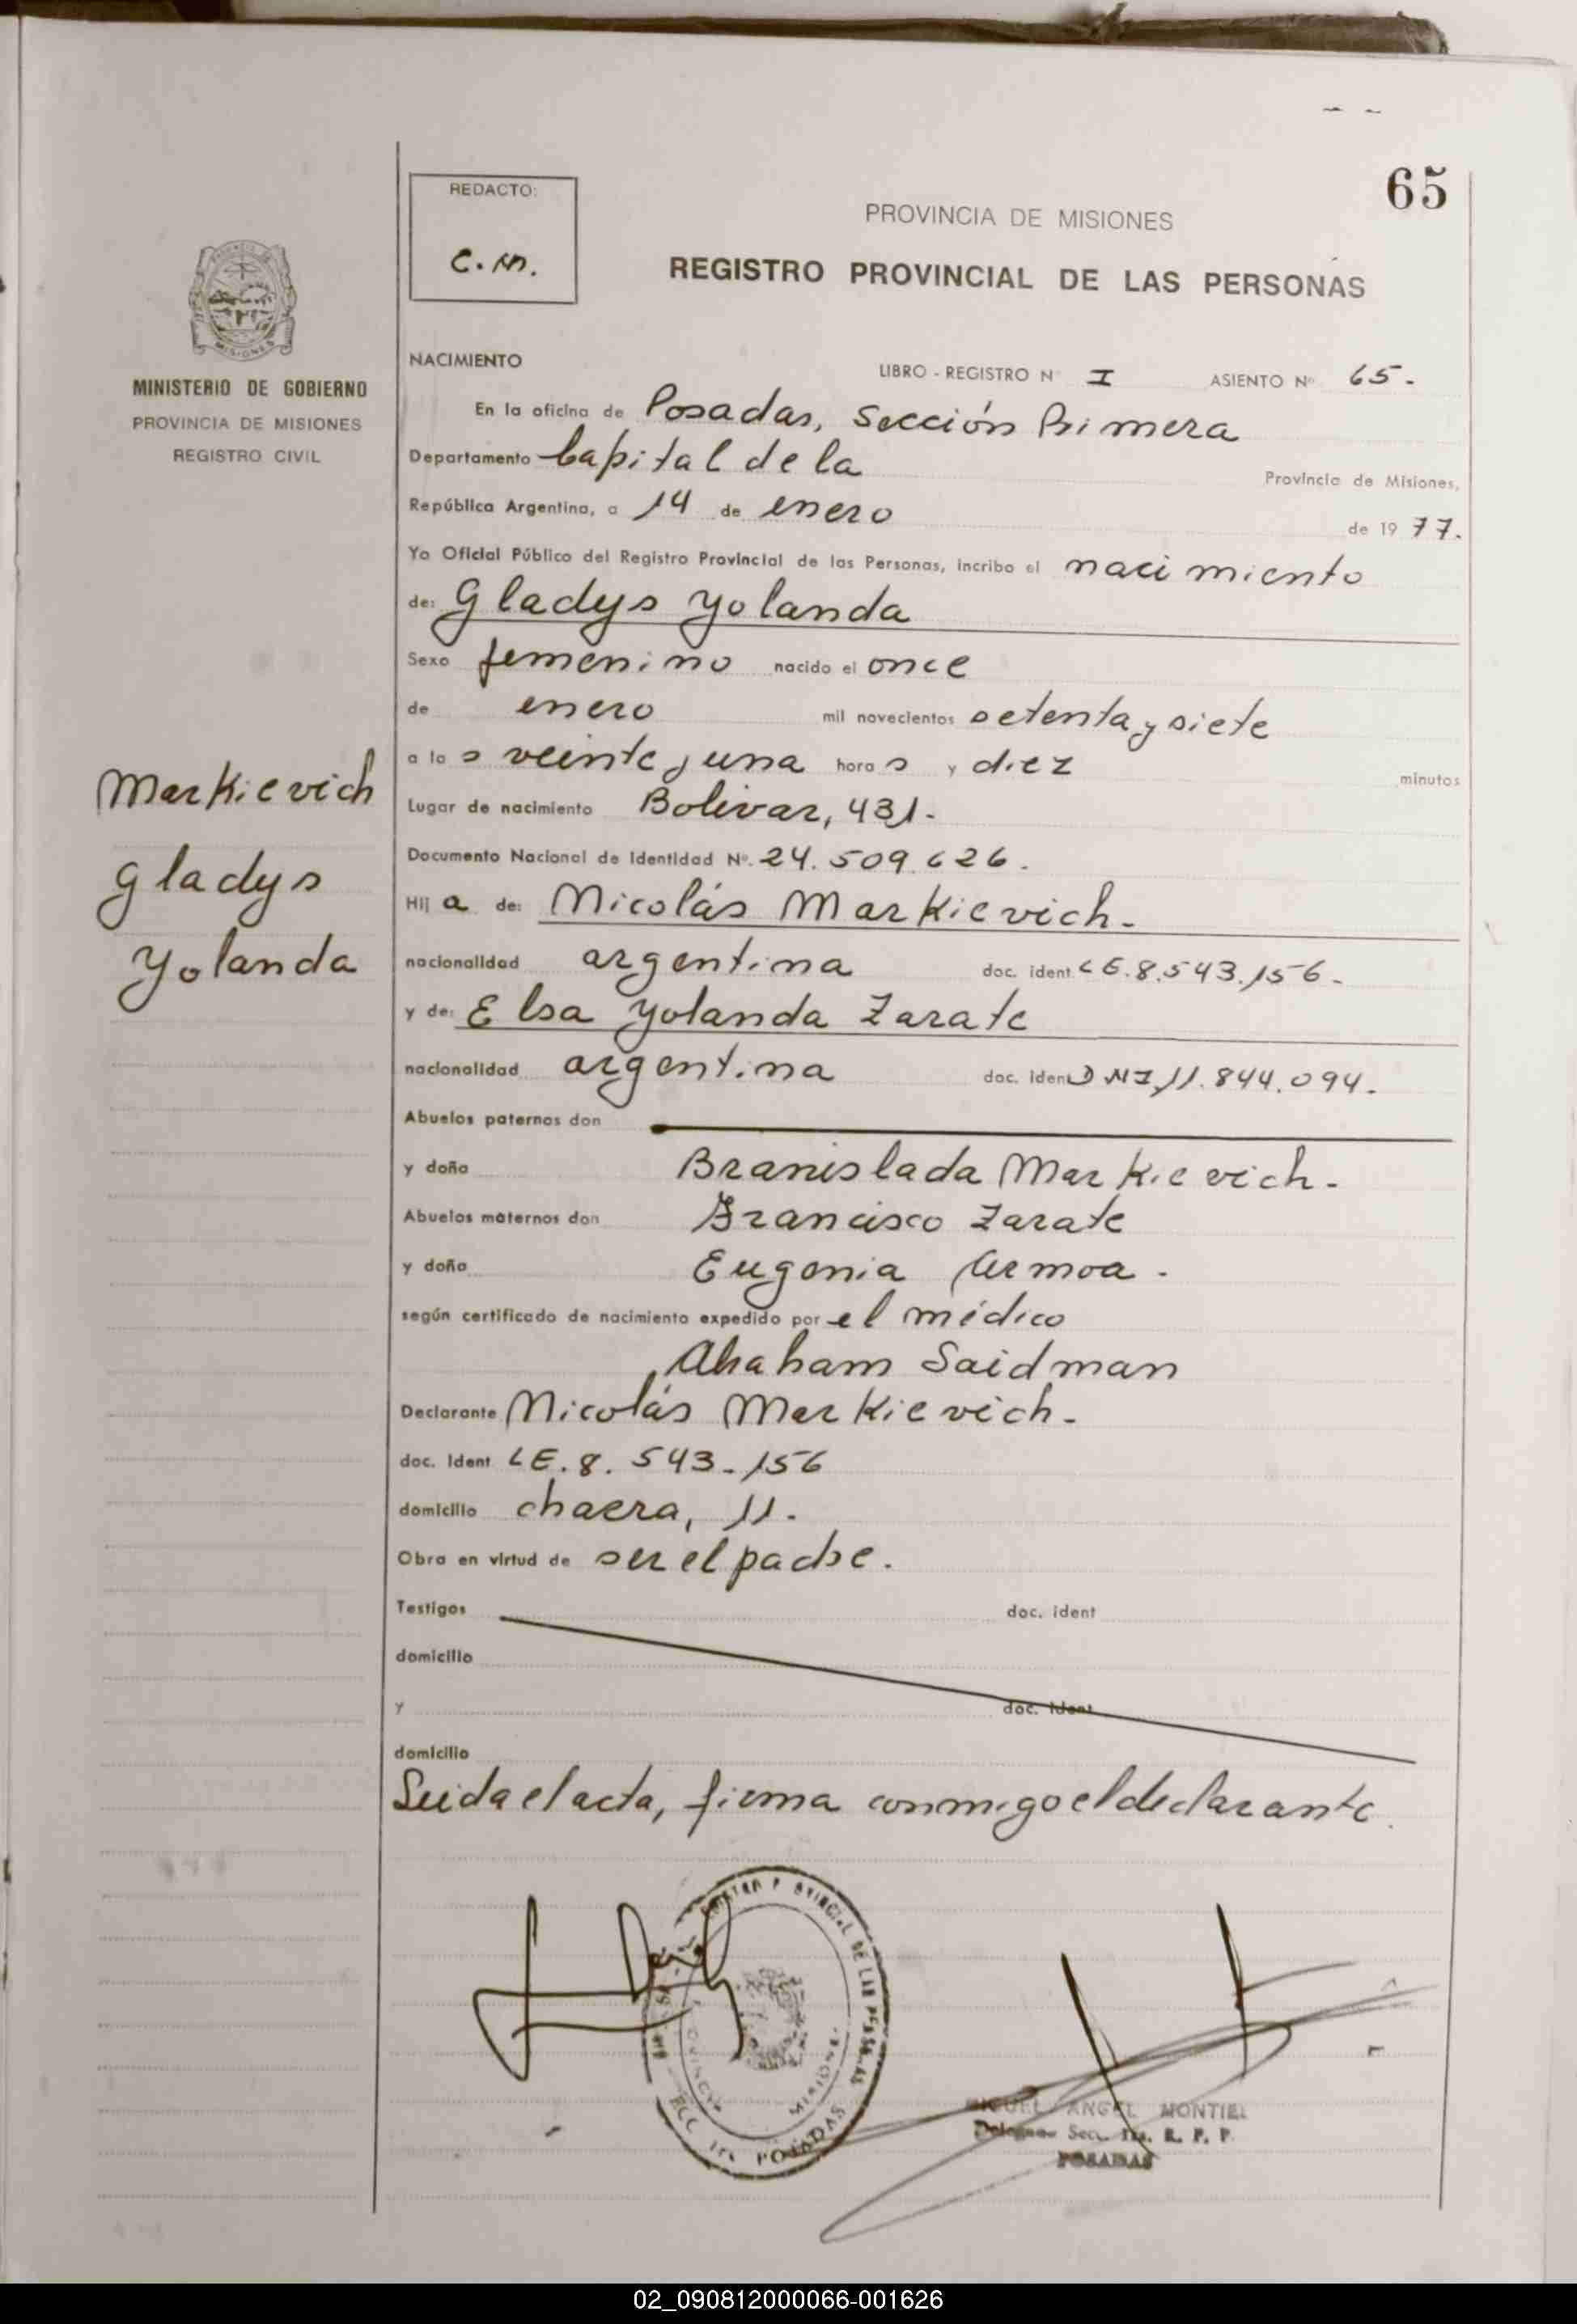 65
REDACTO:
C.M.
PROVINCIA DE MISIONES
REGISTRO PROVINCIAL DE LAS PERSONAS
MISIONES
MINISTERIO DE GOBIERNO
PROVINCIA DE MISIONES
REGISTRO CIVIL
NACIMIENTO LIBRO - REGISTRO Nº I ASIENTO Nº 65.
En la oficina de Posadas, Sección Primera
Departamento Capital de la Provincia de Misiones,
República Argentina, a 14 de enero de 1977.
Yo Oficial Público del Registro Provincial de las Personas, incribo el nacimiento
de: Gladys Yolanda
Sexo femenino nacido el once
de enero mil novecientos setenta y siete
a las veinte y una horas y diez minutos
Markievich
Gladys
Yolanda
Lugar de nacimiento Bolivar, 431.
Documento Nacional de Identidad Nº. 24.509.626.
Hija de: Nicolás Markievich.
nacionalidad argentina doc. ident. LE.8.543.156.
y de: Elsa Yolanda Zarate
nacionalidad argentina doc. ident DNI,11.844.094.
Abuelos paternos don
y doña Branislada Markievich.
Abuelos maternos don Francisco Zarate
y doña Eugenia Armoa.
según certificado de nacimiento expedido por el médico
Abaham Saidman
Declarante Nicolás Markievich.
doc. Ident LE.8.543.156
domicilio chacra, 11.
Obra en virtud de ser el padre.
Testigos doc. ident
domicilio
y doc. ident
domicilio
Leida el acta, firma conmigo el declarante.
PROVINCIAL DE LAS PERSONAS
MISIONES
POSADAS
MIGUEL ANGEL MONTIEL
Delegado Secc. 1ra. R. P. P.
POSADAS
02_090812000066-001626